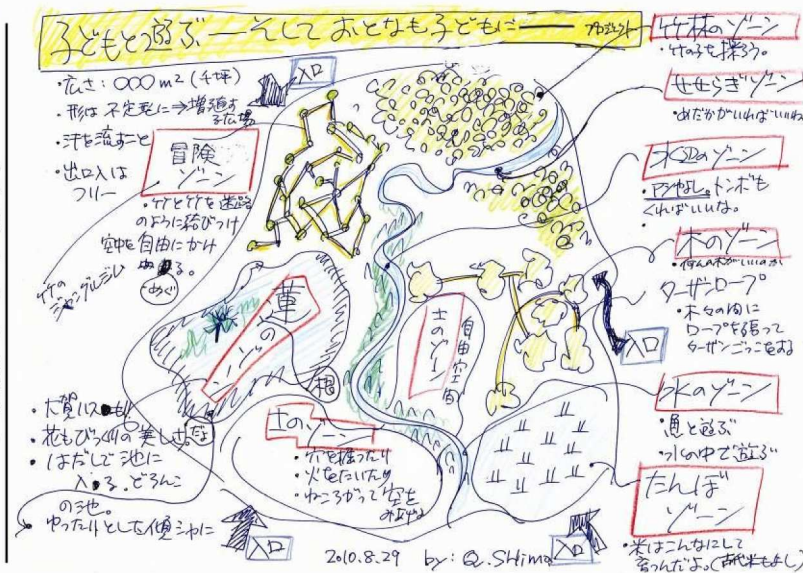 子どもと遊ぶ ― そして おとなも 子どもに ― プロジェクト
・広さ：○○○m²（千坪）
・形は 不定形に⇒増殖する広場
・汗を流すこと
・出口入は
フリー
入口
冒険
ゾーン
・竹と竹を迷路
のように結びつけ
空中を自由にかけ
める。
めぐ
竹の
ジャングルジム
蓮のゾーン
・大賀ハスも!
・花もびっくりの美しさだよ
・はだしで池に
入る。どろんこ
の池。
ゆったりとした傾シャに
根
土のゾーン
・穴を掘ったり
・火をたいたり
・ねころがって空を
みあげる
土のゾーン
自由空間
竹林のゾーン
・竹の子を採ろう。
せせらぎゾーン
・めだかがいればいいわ
水辺のゾーン
・アシもよし。トンボも
くればいいな。
木のゾーン
・何んの木がいいのか
ターザンロープ
・木々の間に
ロープを張って
ターザンごっこをする
入口
水のゾーン
・魚と遊ぶ
・水の中で遊ぶ
たんぼ
ゾーン
・米はこんなにして
育つんだよ。(古代米もよし)
入口
入口
2010.8.29 by: Q.Shima